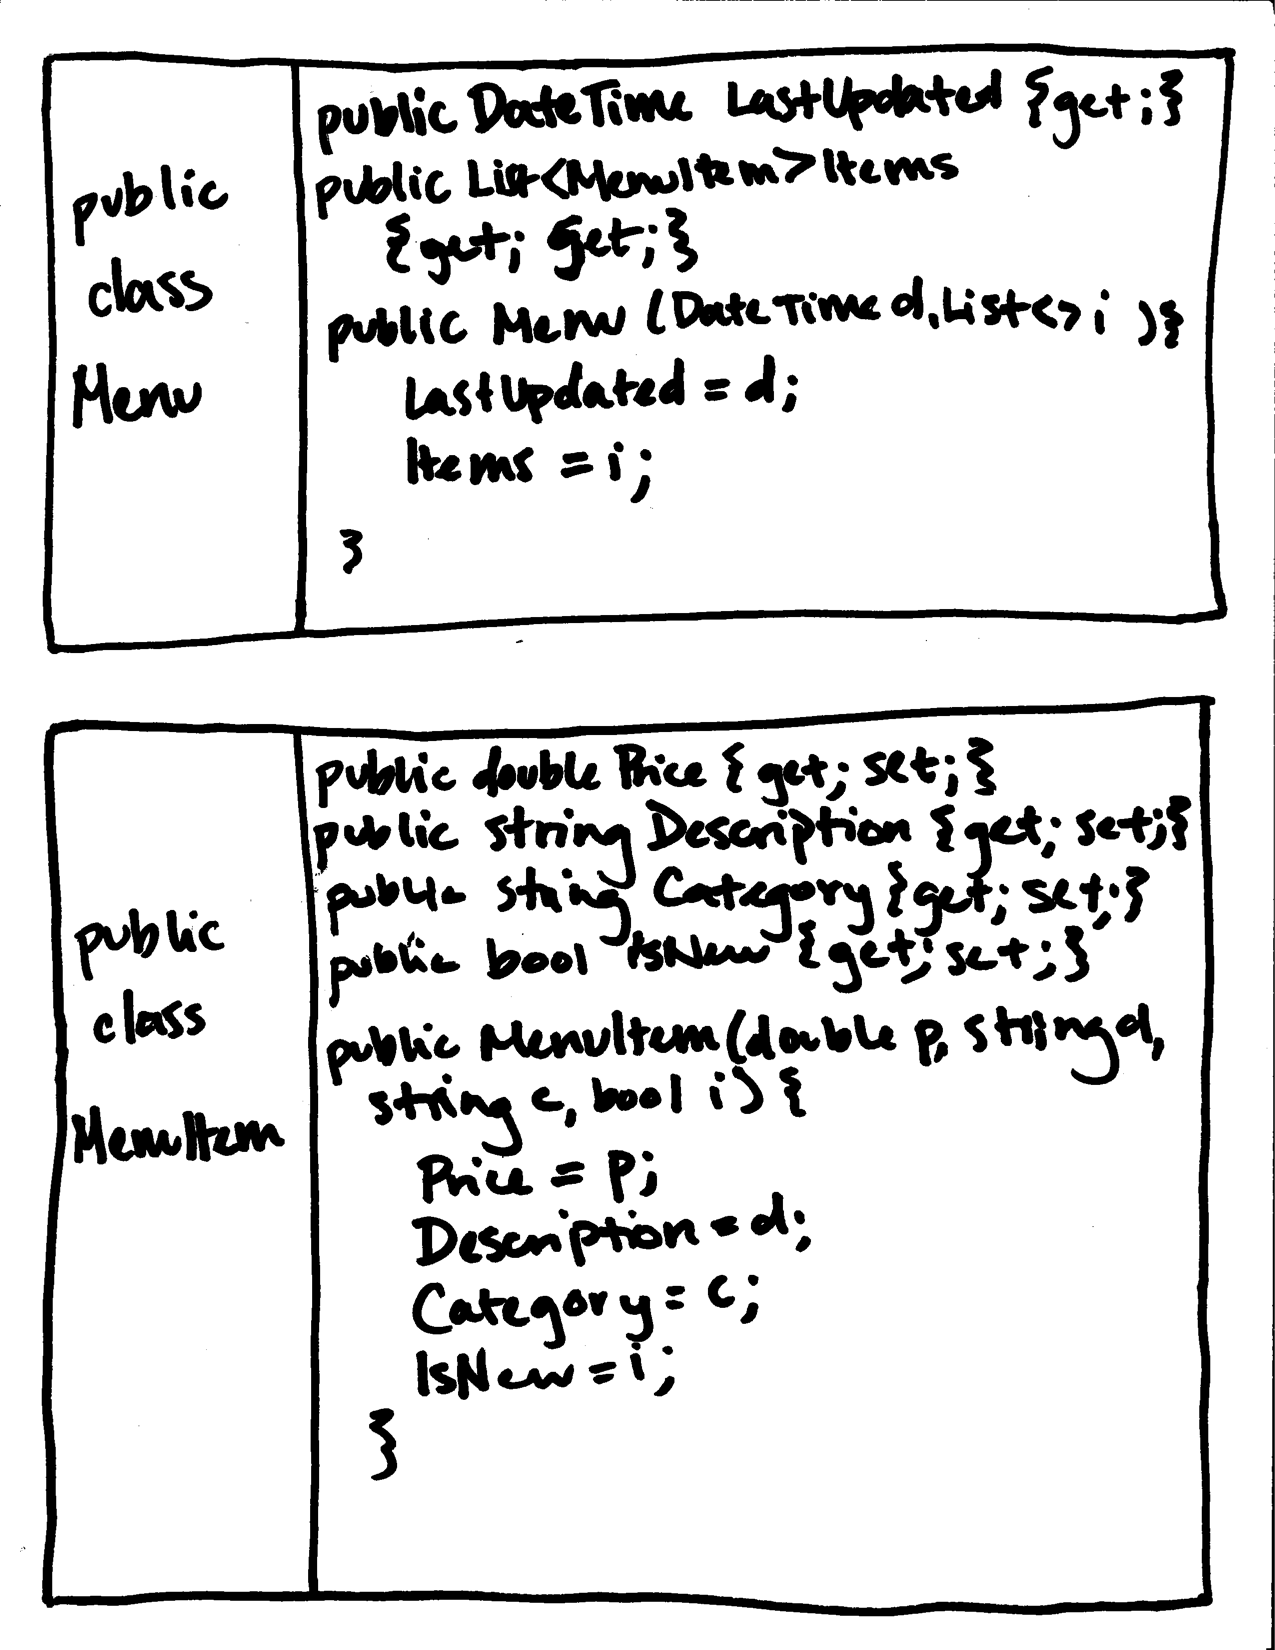 public
class
Menu
public DateTime LastUpdated {get;}
public List<MenuItem> Items
{get; get;}
public Menu (DateTime d, List<> i ){
LastUpdated = d;
Items = i;
}
public
class
MenuItem
public double Price { get; set; }
public string Description {get; set;}
public string Category {get; set;}
public bool IsNew {get; set;}
public MenuItem (double p, string d,
string c, bool i) {
Price = p;
Description = d;
Category = c;
IsNew = i;
}